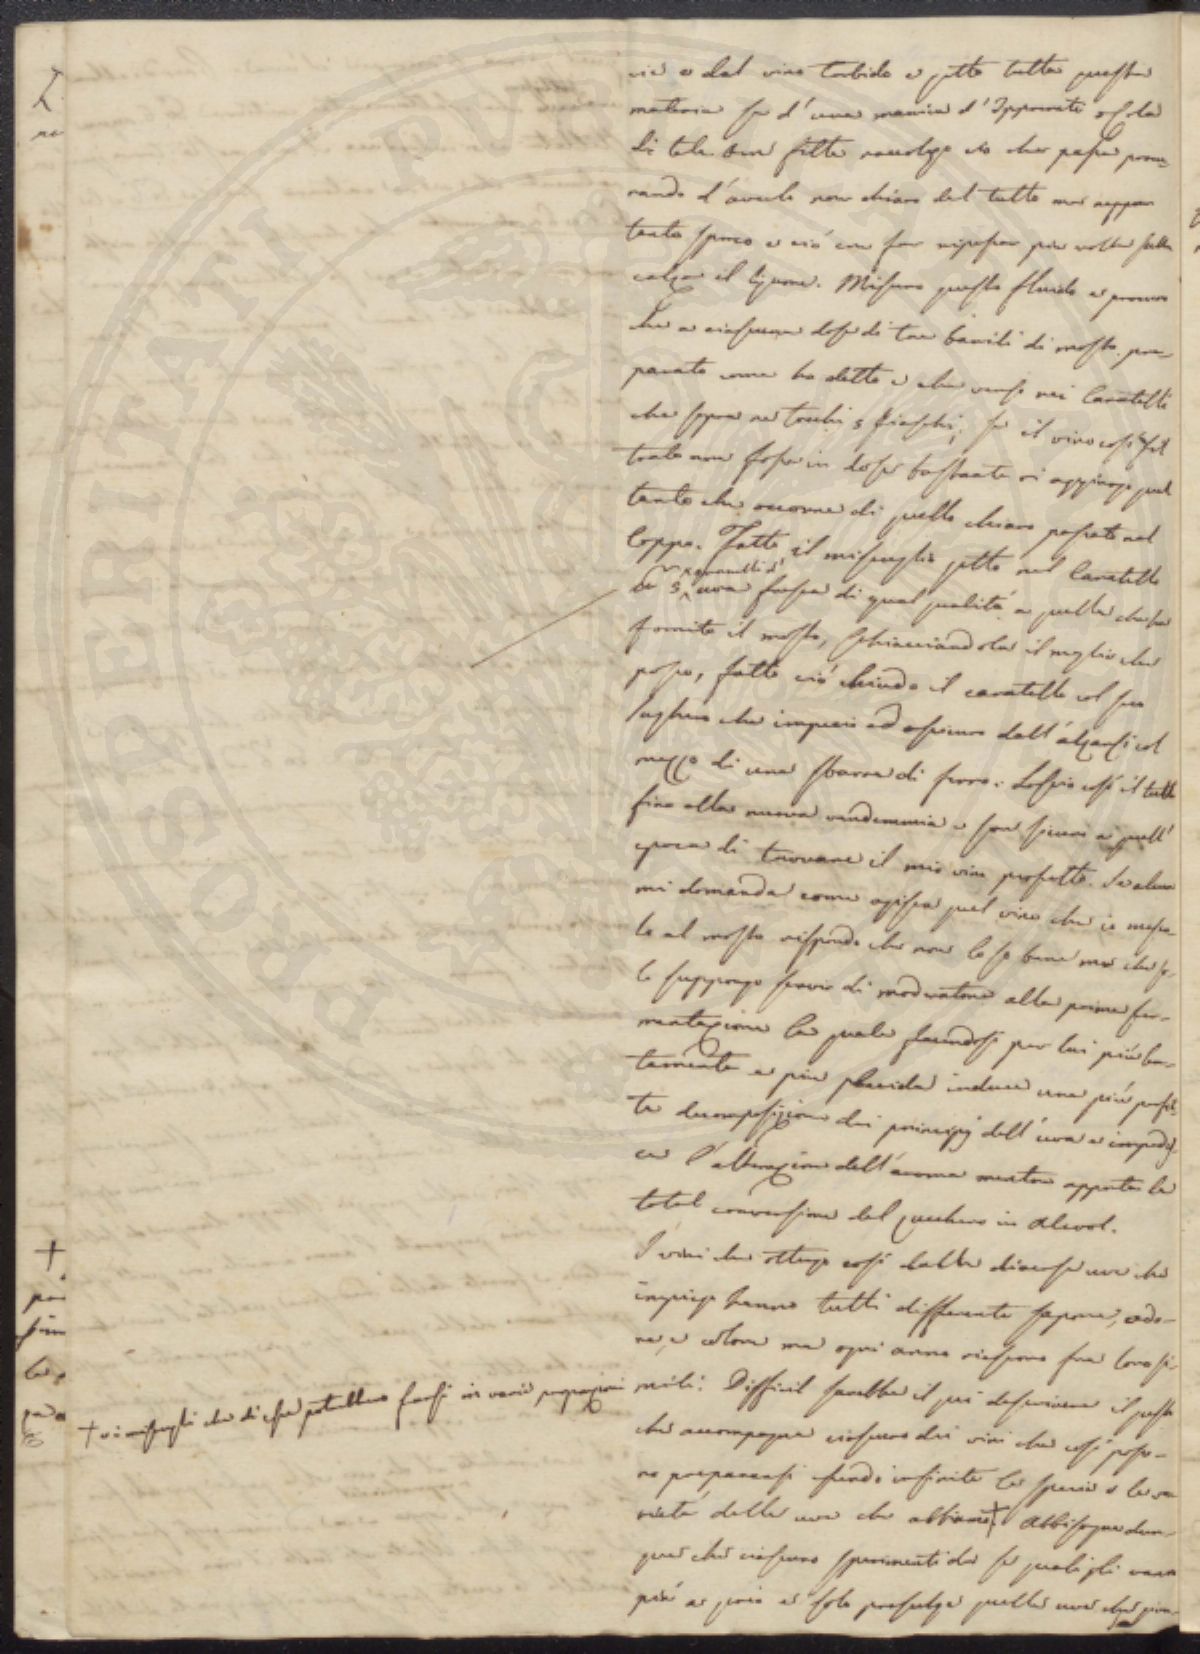 cia e dal vino torbido e getto tutta questa
materia su d'una manica d'Ippocrate o sola
di tela ben fitta raccolgo ciò che passa procu-
rando d'averlo non chiaro del tutto ma neppur
tanto sporco e ciò con far ripassar più volte sulla
calza il liquore. Misuro questo fluido e procuro
che a ciascuna dose di tre barili di mosto pre-
parato come ho detto e che verso nei Caratelli
che sopra ne tocchi 5 fiaschi; se il vino così fil
trato non fosse in dose bastante vi aggiungo quel
tanto che occorre di quello chiaro passato nel
Coppo. Fatto il miscuglio getto nel Caratello
granelli d'
5 uva fresca di egual qualità a quella che ha
fornito il mosto, schiacciandola il meglio che
posso, fatto ciò chiudo il caratello col suo
sughero che impecio ed assicuro dall'alzarsi col
mezzo di una sbarra di ferro. Lascio così il tutto
fino alla nuova vendemmia e son sicuro a quell'
epoca di trovare il mio vino perfetto. Se alcun
mi domanda come agisca quel vino che io mesco-
lo al mosto rispondo che non lo so bene ma che so-
lo suppongo servir di moderatore alla prima fer-
mentazione la quale facendosi per lui più len-
tamente e più placida induce una più perfet-
ta decomposizione dei principj dell'uva e impedis-
ce l'alterazion dell'aroma mentre apporta la
total conversione del zucchero in alcool.
I vini che ottengo così dalle diverse uve che
impiego hanno tutti differente sapore, odo-
re, e colore ma ogni anno riescono fra loro si-
mili. Difficil sarebbe il qui descrivere il gusto
che accompagna ciascuno dei vini che così posso-
no prepararsi essendo infinite le specie e le va
rietà delle uve che abbiamo + Abbisogna dun-
que che ciascuno sperimenti da se quali gli vanno
più a genio e solo prescelga quelle uve che
+ e i miscugli che di esse potrebbero farsi in varie proporzioni